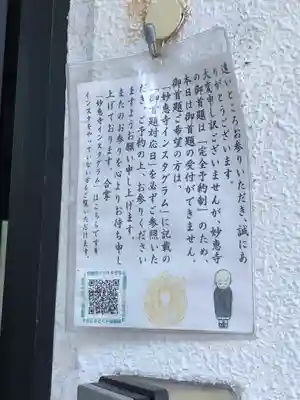 遠いところお参りいただき、誠にあ
りがとうございます。
大変申し訳ございませんが、妙恵寺
の御首題は「完全予約制」のため、
本日は御首題の受付ができません。
御首題ご希望の方は、
「妙恵寺インスタグラム」に記載の
「御首題対応日」を必ずご参照いた
だき、ご予約の上、お参りください
ますようお願い申し上げます。
またのお参りを心よりお待ち申し
上げております。 合掌
「妙恵寺インスタグラム」はこちらです↓
インスタをやっていない方もご覧いただけます。